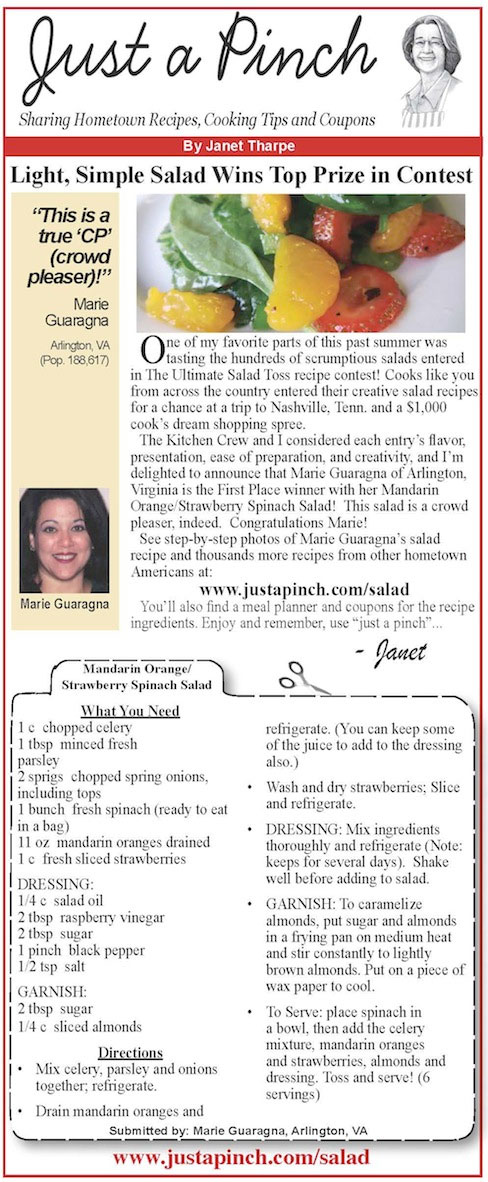 Just a Pinch
Sharing Hometown Recipes, Cooking Tips and Coupons
By Janet Tharpe
Light, Simple Salad Wins Top Prize in Contest
“This is a
true ‘CP’
(crowd
pleaser)!”
Marie
Guaragna
Arlington, VA
(Pop. 188,617)
Marie Guaragna
One of my favorite parts of this past summer was
tasting the hundreds of scrumptious salads entered
in The Ultimate Salad Toss recipe contest! Cooks like you
from across the country entered their creative salad recipes
for a chance at a trip to Nashville, Tenn. and a $1,000
cook’s dream shopping spree.
The Kitchen Crew and I considered each entry’s flavor,
presentation, ease of preparation, and creativity, and I’m
delighted to announce that Marie Guaragna of Arlington,
Virginia is the First Place winner with her Mandarin
Orange/Strawberry Spinach Salad! This salad is a crowd
pleaser, indeed. Congratulations Marie!
See step-by-step photos of Marie Guaragna’s salad
recipe and thousands more recipes from other hometown
Americans at:
www.justapinch.com/salad
You’ll also find a meal planner and coupons for the recipe
ingredients. Enjoy and remember, use “just a pinch”...
- Janet
Mandarin Orange/
Strawberry Spinach Salad
What You Need
1 c chopped celery
1 tbsp minced fresh
parsley
2 sprigs chopped spring onions,
including tops
1 bunch fresh spinach (ready to eat
in a bag)
11 oz mandarin oranges drained
1 c fresh sliced strawberries
DRESSING:
1/4 c salad oil
2 tbsp raspberry vinegar
2 tbsp sugar
1 pinch black pepper
1/2 tsp salt
GARNISH:
2 tbsp sugar
1/4 c sliced almonds
Directions
• Mix celery, parsley and onions
together; refrigerate.
• Drain mandarin oranges and
refrigerate. (You can keep some
of the juice to add to the dressing
also.)
• Wash and dry strawberries; Slice
and refrigerate.
• DRESSING: Mix ingredients
thoroughly and refrigerate (Note:
keeps for several days). Shake
well before adding to salad.
• GARNISH: To caramelize
almonds, put sugar and almonds
in a frying pan on medium heat
and stir constantly to lightly
brown almonds. Put on a piece of
wax paper to cool.
• To Serve: place spinach in
a bowl, then add the celery
mixture, mandarin oranges
and strawberries, almonds and
dressing. Toss and serve! (6
servings)
Submitted by: Marie Guaragna, Arlington, VA
www.justapinch.com/salad